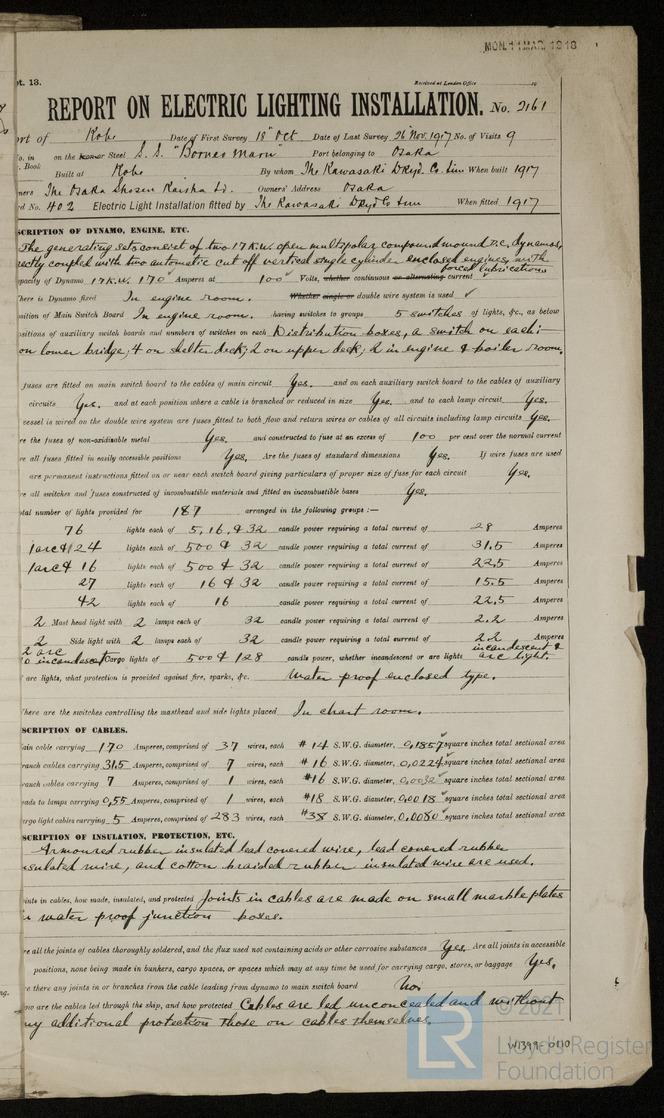 MON. 11 MAR. 1918
pt. 13.
Received at London Office 19
REPORT ON ELECTRIC LIGHTING INSTALLATION. No. 2161
ort of Kobe Date of First Survey 18th Oct Date of Last Survey 26 Nov. 1917 No. of Visits 9
No. in on the Iron or Steel S. S. "Borneo Maru" Port belonging to Osaka
. Book Built at Kobe By whom The Kawasaki Dkyd. Co. Lim When built 1917
ners The Osaka Shosen Kaisha Ld. Owners' Address Osaka
rd No. 402 Electric Light Installation fitted by The Kawasaki Dkyd Co Lim When fitted 1917
SCRIPTION OF DYNAMO, ENGINE, ETC.
The generating sets consist of two 17 K.W. open multipolar compound wound D.C. dynamos,
rectly coupled with two automatic cut off vertical single cylinder enclosed engines with
forced lubrications
apacity of Dynamo 17 K.W. 170 Amperes at 100 Volts, whether continuous or alternating current
here is Dynamo fixed In engine room. Whether single or double wire system is used
osition of Main Switch Board In engine room. having switches to groups 5 switches of lights, &c., as below
ositions of auxiliary switch boards and numbers of switches on each Distribution boxes, a switch on each:—
on lower bridge; 4 on shelter deck; 2 on upper deck; 2 in engine & boiler room.
fuses are fitted on main switch board to the cables of main circuit Yes. and on each auxiliary switch board to the cables of auxiliary
circuits Yes. and at each position where a cable is branched or reduced in size Yes. and to each lamp circuit Yes.
vessel is wired on the double wire system are fuses fitted to both flow and return wires or cables of all circuits including lamp circuits Yes.
re the fuses of non-oxidizable metal Yes. and constructed to fuse at an excess of 100 per cent over the normal current
re all fuses fitted in easily accessible positions Yes. Are the fuses of standard dimensions Yes. If wire fuses are used
are permanent instructions fitted on or near each switch board giving particulars of proper size of fuse for each circuit Yes.
re all switches and fuses constructed of incombustible materials and fitted on incombustible bases Yes.
otal number of lights provided for 187 arranged in the following groups :—
76 lights each of 5, 16, & 32 candle power requiring a total current of 28 Amperes
1 arc & 24 lights each of 500 & 32 candle power requiring a total current of 31.5 Amperes
1 arc & 16 lights each of 500 & 32 candle power requiring a total current of 22.5 Amperes
27 lights each of 16 & 32 candle power requiring a total current of 15.5 Amperes
42 lights each of 16 candle power requiring a total current of 22.5 Amperes
2 Mast head light with 2 lamps each of 32 candle power requiring a total current of 2.2 Amperes
2 Side light with 2 lamps each of 32 candle power requiring a total current of 2.2 Amperes
2 arc incandescent &
incandescent Cargo lights of 500 & 128 candle power, whether incandescent or arc lights arc light.
f arc lights, what protection is provided against fire, sparks, &c. Water proof enclosed type.
here are the switches controlling the masthead and side lights placed In chart room.
SCRIPTION OF CABLES.
ain cable carrying 170 Amperes, comprised of 37 wires, each #14 S.W.G. diameter, 0.1857 square inches total sectional area
ranch cables carrying 31.5 Amperes, comprised of 7 wires, each #16 S.W.G. diameter, 0.0224 square inches total sectional area
ranch cables carrying 7 Amperes, comprised of 1 wires, each #16 S.W.G. diameter, 0.0032 square inches total sectional area
ads to lamps carrying 0.55 Amperes, comprised of 1 wires, each #18 S.W.G. diameter, 0.0018 square inches total sectional area
argo light cables carrying 5 Amperes, comprised of 283 wires, each #38 S.W.G. diameter, 0.0080 square inches total sectional area
SCRIPTION OF INSULATION, PROTECTION, ETC.
Armoured rubber insulated lead covered wire, lead covered rubber
nsulated wire, and cotton braided rubber insulated wire are used.
oints in cables, how made, insulated, and protected Joints in cables are made on small marble plates
in water proof junction boxes.
re all the joints of cables thoroughly soldered, and the flux used not containing acids or other corrosive substances Yes. Are all joints in accessible
positions, none being made in bunkers, cargo spaces, or spaces which may at any time be used for carrying cargo, stores, or baggage Yes.
re there any joints in or branches from the cable leading from dynamo to main switch board No.
ow are the cables led through the ship, and how protected Cables are led unconcealed and without
ny additional protection those on cables themselves.
W1399-0110
LR
© 2021
Lloyd's Register
Foundation
ng.